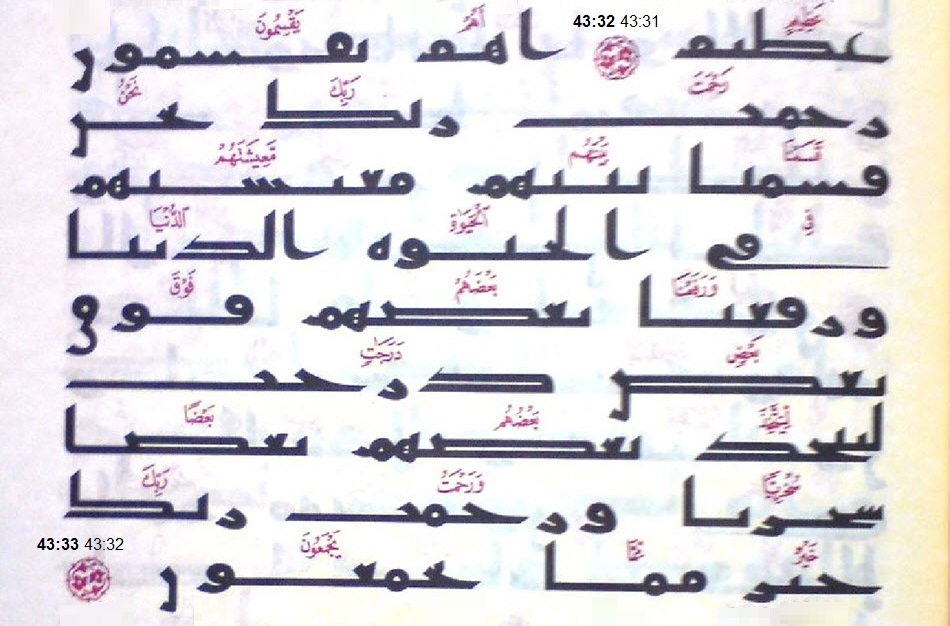 عَظِيمٍ 43:32 43:31 أَهُمْ يَقْسِمُونَ
عظيم اهم يقسمون
رَحْمَتَ رَبِّكَ نَحْنُ
رحمت ربك نحن
قَسَمْنَا بَيْنَهُم مَّعِيشَتَهُمْ
قسمنا بينهم معيشتهم
فِي ٱلْحَيَوٰةِ ٱلدُّنْيَا
في الحيوه الدنيا
وَرَفَعْنَا بَعْضَهُمْ فَوْقَ
ورفعنا بعضهم فوق
بَعْضٍ دَرَجَٰتٍ
بعض درجت
لِّيَتَّخِذَ بَعْضُهُم بَعْضًا
ليتخذ بعضهم بعضا
سُخْرِيًّا وَرَحْمَتُ رَبِّكَ
سخريا ورحمت ربك
خَيْرٌ مِّمَّا يَجْمَعُونَ 43:33 43:32
خير مما يجمعون